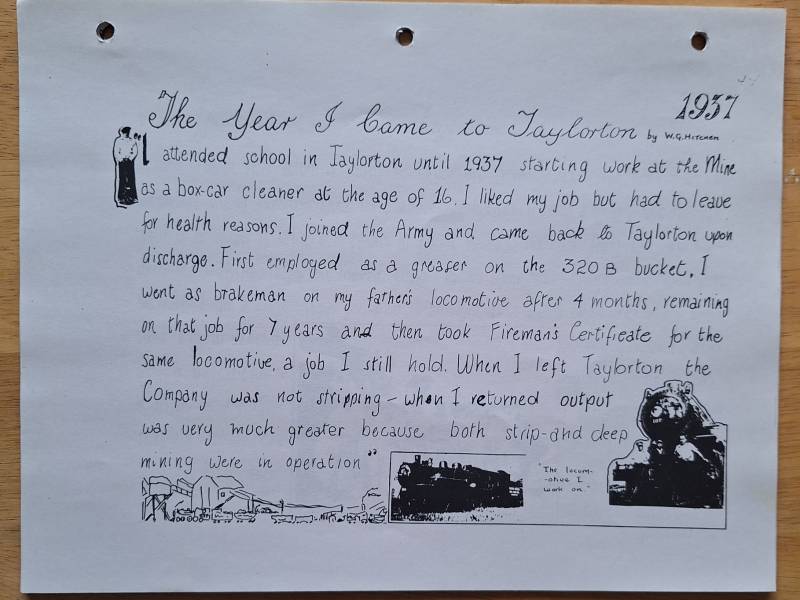 1937
The Year I Came to Taylorton by W.G. Hitchen
"I attended school in Taylorton until 1937 starting work at the Mine
as a box-car cleaner at the age of 16. I liked my job but had to leave
for health reasons. I joined the Army and came back to Taylorton upon
discharge. First employed as a greaser on the 320 B bucket, I
went as brakeman on my father's locomotive after 4 months, remaining
on that job for 7 years and then took Fireman's Certificate for the
same locomotive, a job I still hold. When I left Taylorton the
Company was not stripping – when I returned output
was very much greater because both strip-and deep
mining were in operation"
"The locom-
-otive I
work on."